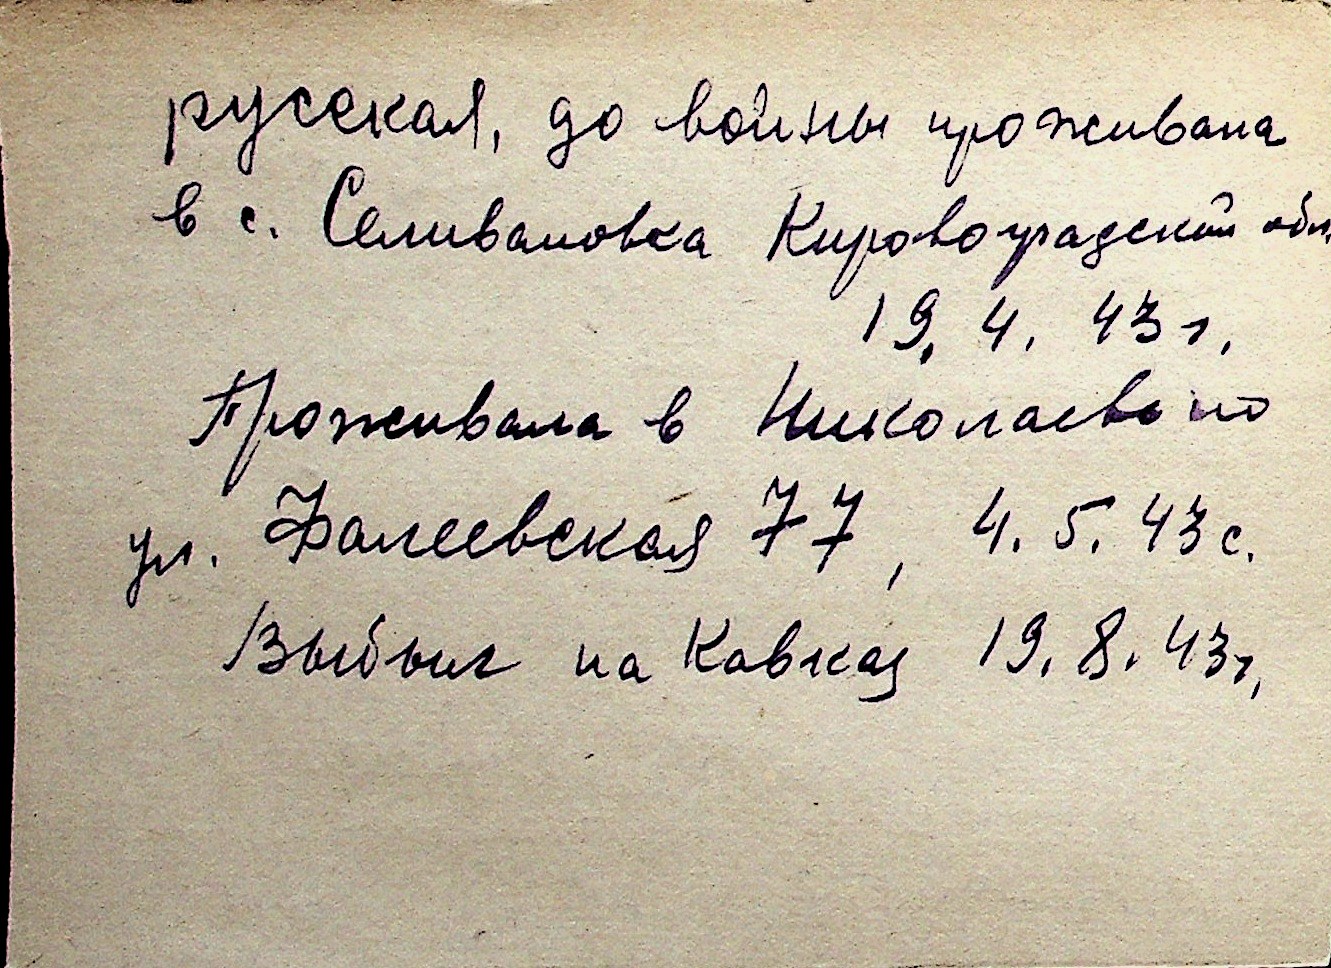 русская, до войны проживала
в с. Селивановка Кировоградской обл.
19. 4. 43 г.
Проживала в Николаеве по
ул. Фалеевская 77, 4. 5. 43 г.
Выбыл на Кавказ 19. 8. 43 г.